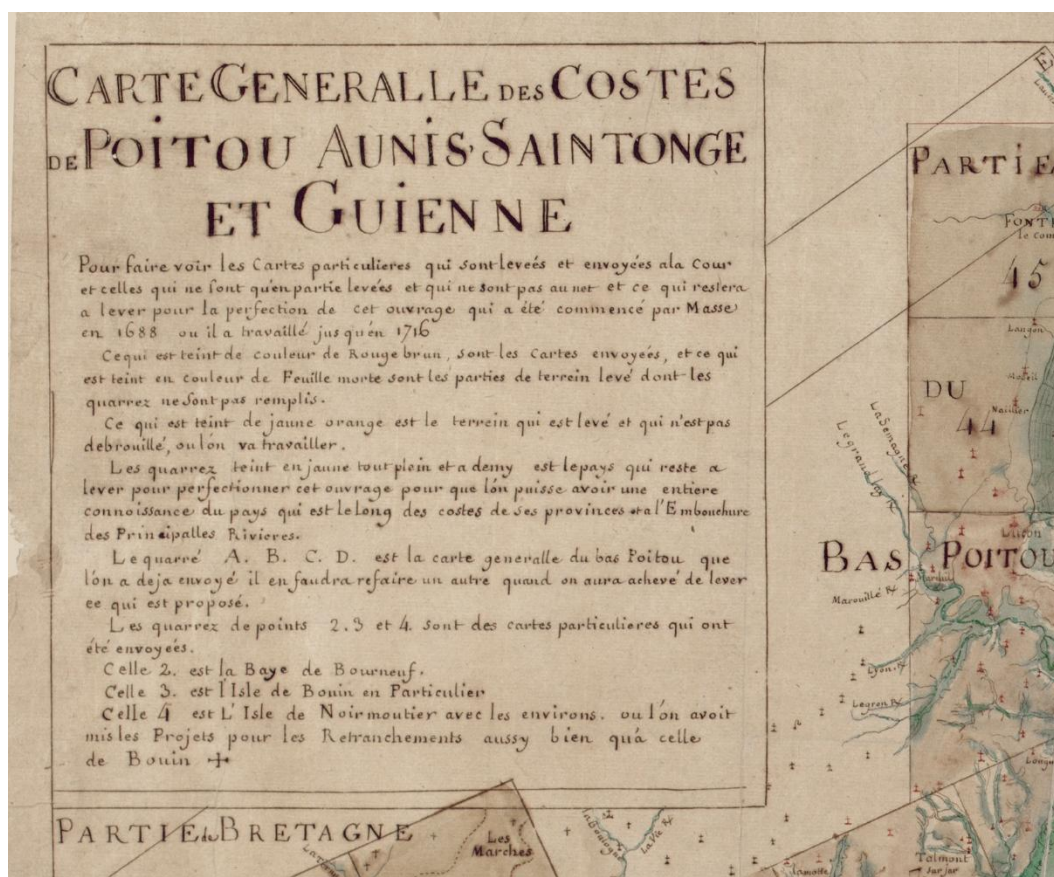 CARTE GENERALLE DES COSTES
DE POITOU AUNIS, SAINTONGE
ET GUIENNE
Pour faire voir les Cartes particulieres qui sont leveés et envoyées ala Cour
et celles qui ne sont qu'en partie levées et qui ne sont pas au net et ce qui restera
a lever pour la perfection de cet ouvrage qui a été commencé par Masse
en 1688 ou il a travaillé jusqu'en 1716
Ce qui est teint de couleur de Rouge brun, sont les Cartes envoyées, et ce qui
est teint en couleur de Feuille morte sont les parties de terrein levé dont les
quarrez ne sont pas remplis.
Ce qui est teint de jaune orange est le terrein qui est levé et qui n'est pas
debrouillé, ou l'on va travailler.
Les quarrez teint en jaune tout plein et a demy est le pays qui reste a
lever pour perfectionner cet ouvrage pour que l'on puisse avoir une entiere
connoissance du pays qui est le long des costes de ses provinces et a l'Embouchure
des Principalles Rivieres.
Le quarré A. B. C. D. est la carte generalle du bas Poitou que
l'on a deja envoyé il en faudra refaire un autre quand on aura achevé de lever
ce qui est proposé.
Les quarrez de points 2. 3 et 4. sont des cartes particulieres qui ont
été envoyées.
Celle 2. est la Baye de Bourneuf.
Celle 3. est l'Isle de Bouin en Particulier
Celle 4 est L'Isle de Noirmoutier avec les environs. ou l'on avoit
mis les Projets pour les Retranchements aussy bien qu'a celle
de Bouin
E
PARTIE
FONT
le com
45
Langon
DU
44
Nallier
La Semagne R
Le grand Lay R
Luçon
BAS POITOU
Mareuil
Marouillé R
Lyon R
Legron R
Longu
PARTIE de BRETAGNE
Les
Marches
La Boulogne
La Vie R
Lamotte
Talmont
sur jar